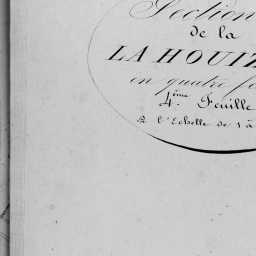 Section
de la
LA HOUIZ
en quatre f
4.ème Feuille
à l'Echelle de 1 à